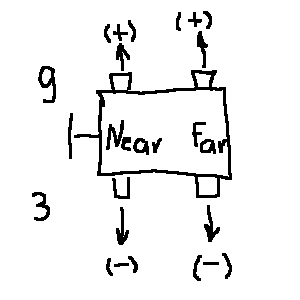 (+) (+)
9
Near Far
3
(-) (-)